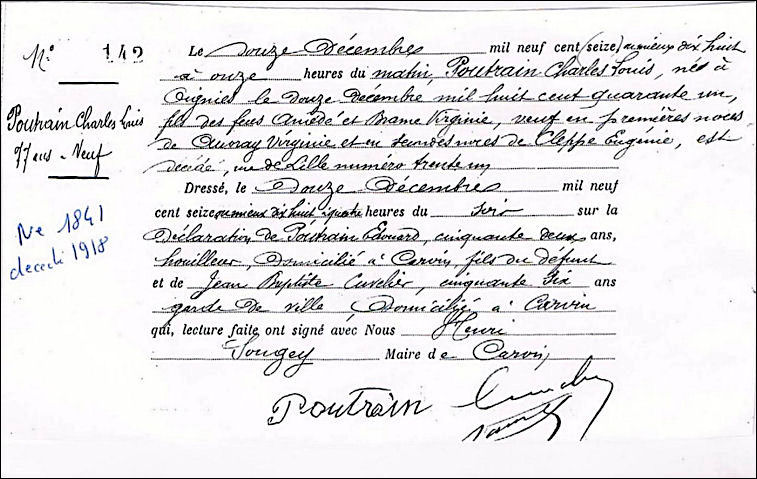 N° 142
Poutrain Charles Louis
77 ans - Veuf
Né 1841
décédé 1918
Le douze Décembre mil neuf cent (seize) ou mieux dix huit
à onze heures du matin, Poutrain Charles Louis, né à
Oignies le douze décembre mil huit cent quarante un,
fils des feus Amédé et Brame Virginie, veuf en premières noces
de Auvray Virginie et en secondes noces de Cleppe Eugénie, est
décédé, rue de Lille numéro trente un
Dressé, le douze Décembre mil neuf
cent seize ou mieux dix huit à quatre heures du soir sur la
déclaration de Poutrain Edouard, cinquante deux ans,
houilleur, domicilié à Carvin fils du défunt
et de Jean Baptiste Cuvelier, cinquante six ans
garde de ville domicilié à Carvin
qui, lecture faite ont signé avec Nous Henri
Sougey Maire de Carvin
Poutrain